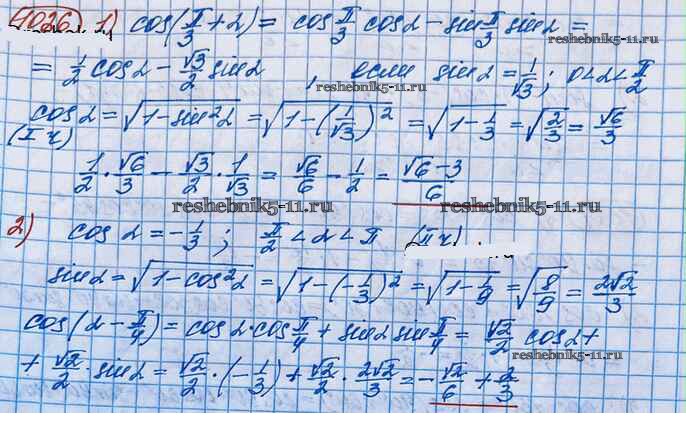 1026 1) cos(π/3 + α) = cos π/3 cos α − sin π/3 sin α =
= 1/2 cos α − √3/2 sin α, если sin α = 1/√3; 0 < α < π/2
reshebnik5-11.ru
cos α = √(1 − sin²α) = √(1 − (1/√3)²) = √(1 − 1/3) = √(2/3) = √6/3
(I ч)
1/2 · √6/3 − √3/2 · 1/√3 = √6/6 − 1/2 = (√6 − 3)/6
reshebnik5-11.ru
reshebnik5-11.ru
2) cos α = −1/3; π/2 < α < π (II ч)
sin α = √(1 − cos²α) = √(1 − (−1/3)²) = √(1 − 1/9) = √(8/9) = 2√2/3
cos(α − π/4) = cos α · cos π/4 + sin α sin π/4 = √2/2 cos α +
reshebnik5-11.ru
+ √2/2 · sin α = √2/2 · (−1/3) + √2/2 · 2√2/3 = −√2/6 + 2/3
reshebnik5-11.ru